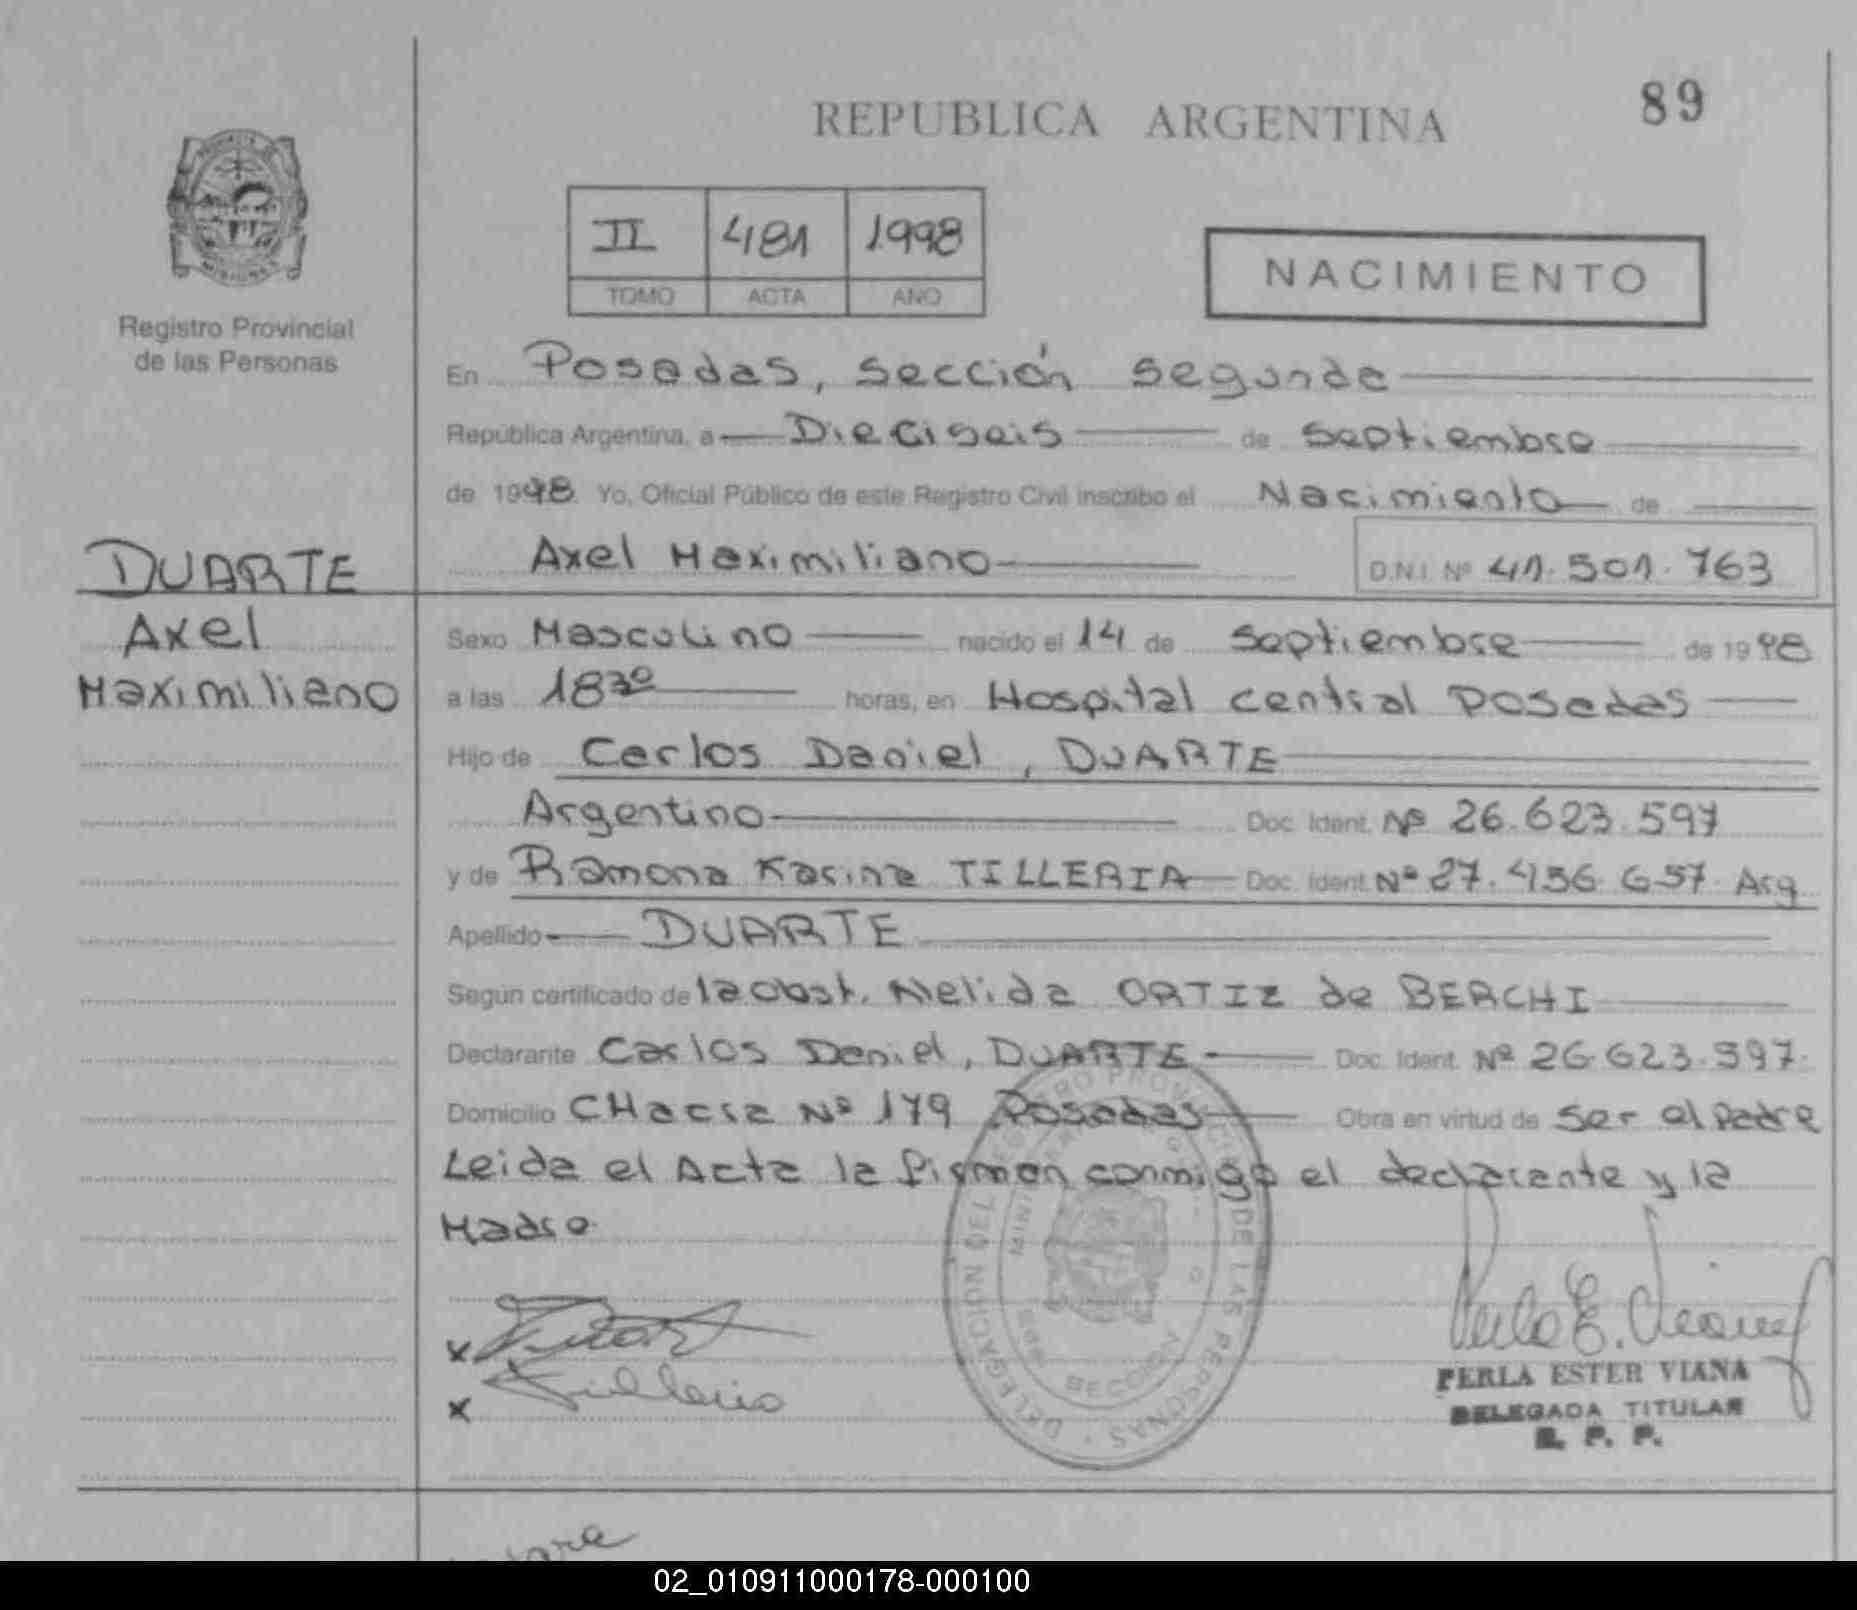 89
REPUBLICA ARGENTINA
II 481 1998
TOMO ACTA AÑO
NACIMIENTO
Registro Provincial
de las Personas
En Posadas, sección segunda
República Argentina, a Dieciseis de septiembre
de 1998. Yo, Oficial Público de este Registro Civil inscribo el Nacimiento de
Axel Maximiliano D.N.I. Nº 41.501.763
DUARTE
Axel
Maximiliano
Sexo Masculino nacido el 14 de septiembre de 1998
a las 18³⁰ horas, en Hospital central Posadas
Hijo de Carlos Daniel, DUARTE
Argentino Doc. Ident. Nº 26.623.597
y de Ramona Karina TILLERIA Doc. Ident. Nº 27.456.657. Arg
Apellido DUARTE
Según certificado de la Obst. Nelida ORTIZ de BERCHI
Declarante Carlos Daniel, DUARTE Doc. Ident. Nº 26.623.597.
Domicilio CHacra Nº 179 Posadas Obra en virtud de ser el Padre
Leida el Acta la firman conmigo el declarante y la
Madre
x
x Tilleria
DELEGACION DEL REGISTRO PROVINCIAL DE LAS PERSONAS
Perla E. Viana
PERLA ESTER VIANA
DELEGADA TITULAR
R. P. P.
02_010911000178-000100